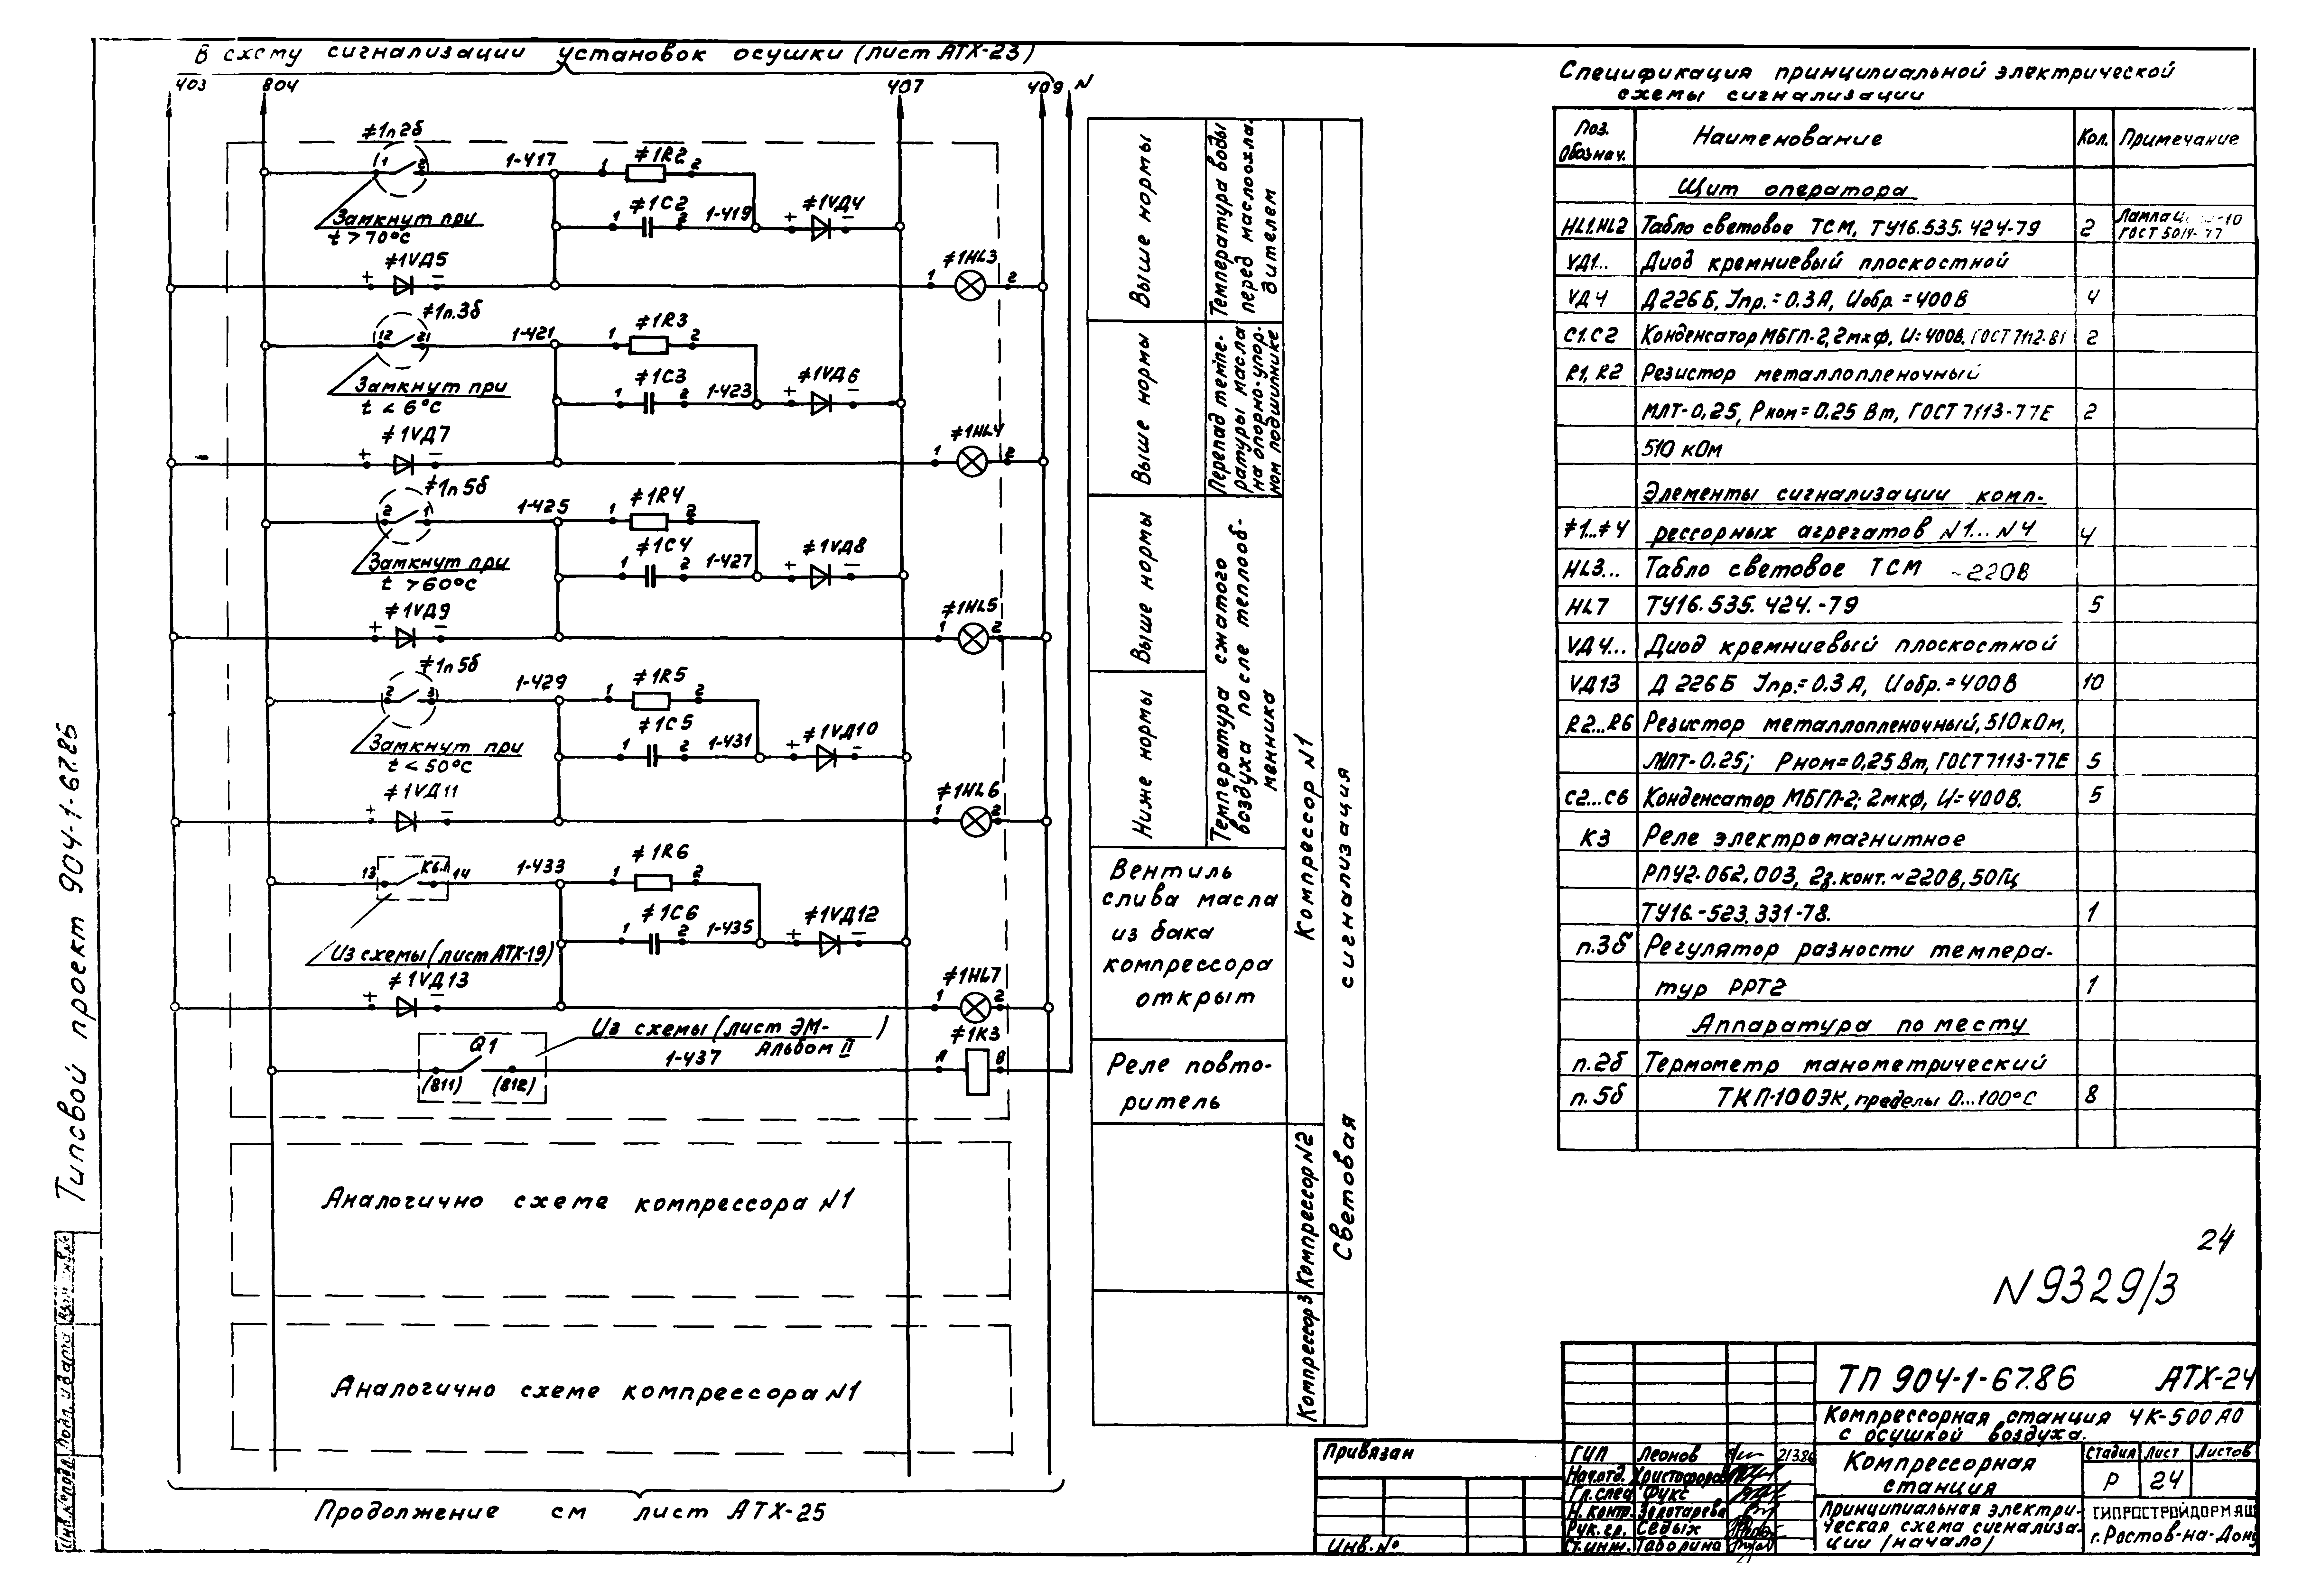 В схему сигнализации установок осушки (лист АТХ-23)
403 804 407 409 N
≠1п2б
1 2
1-417
1 ≠1R2 2
Замкнут при
t > 70°С
1 ≠1С2 2
1-419
+ ≠1VД4 −
+ ≠1VД5 −
1 ≠1HL3 2
≠1п.3б
12 21
1-421
1 ≠1R3 2
Замкнут при
t < 6°С
1 ≠1С3 2
1-423
+ ≠1VД6 −
+ ≠1VД7 −
1 ≠1HL4 2
≠1п5б
2 1
1-425
1 ≠1R4 2
Замкнут при
t > 60°С
1 ≠1С4 2
1-427
+ ≠1VД8 −
+ ≠1VД9 −
1 ≠1HL5 2
≠1п5б
2 3
1-429
1 ≠1R5 2
Замкнут при
t < 50°С
1 ≠1С5 2
1-431
+ ≠1VД10 −
+ ≠1VД11 −
1 ≠1HL6 2
13 14
1-433
1 ≠1R6 2
Из схемы (лист АТХ-19)
1 ≠1С6 2
1-435
+ ≠1VД12 −
+ ≠1VД13 −
1 ≠1HL7 2
Q1
(811) (812)
Из схемы (лист ЭМ- )
Альбом II
1-437
А ≠1К3 В
Аналогично схеме компрессора N1
Аналогично схеме компрессора N1
Продолжение см лист АТХ-25
Выше нормы
Температура воды
перед маслоохла-
дителем
Выше нормы
Перепад темпе-
ратуры масла
на опорно-упор-
ном подшипнике
Выше нормы
Ниже нормы
Температура сжатого
воздуха после теплооб-
менника
Вентиль
слива масла
из бака
компрессора
открыт
Реле повто-
ритель
Компрессор N1
Компрессор N2
Компрессор 3
Световая сигнализация
Спецификация принципиальной электрической
схемы сигнализации
Поз. Обознач. Наименование Кол. Примечание
Щит оператора
HL1.HL2 Табло световое ТСМ, ТУ16.535.424-79 2
VД1... Диод кремниевый плоскостной
VД4 Д226Б, Iпр.=0.3А, Uобр.=400В 4
С1.С2 Конденсатор МБГП-2,2мкф, U=400В, ГОСТ 7112-81 2
R1, R2 Резистор металлопленочный
МЛТ-0,25, Рном=0.25 Вт, ГОСТ 7113-77Е 2
510 кОм
Элементы сигнализации комп-
≠1...≠4 рессорных агрегатов N1...N4 4
HL3... Табло световое ТСМ ~220В
HL7 ТУ16.535.424.-79 5
VД4... Диод кремниевый плоскостной
VД13 Д 226Б Iпр.=0.3А, Uобр.=400В 10
R2...R6 Резистор металлопленочный, 510кОм,
МЛТ-0.25; Рном=0,25 Вт, ГОСТ 7113-77Е 5
С2...С6 Конденсатор МБГП-2; 2мкф, U=400В. 5
К3 Реле электромагнитное
РПУ2-062.003, 2з.конт.~220В, 50Гц
ТУ16.-523.331-78. 1
п.3б Регулятор разности темпера-
тур РРТ2 1
Аппаратура по месту
п.2б Термометр манометрический
п.5б ТКП-100ЭК, пределы 0...100°С 8
24
N9329/3
Типовой проект 904-1-67.86
Подп. и дата
Привязан
Инв.No
ТП 904-1-67.86 АТХ-24
Компрессорная станция 4К-500А0
с осушкой воздуха.
ГИП Леонов
Нач.отд. Христофоров
Гл.спец Фукс
Н. контр. Золотарева
Рук. гр. Седых
Ст.инж. Таволина
Компрессорная
станция
Стадия Лист Листов
Р 24
Принципиальная электри-
ческая схема сигнализа-
ции (начало)
ГИПРОСТРОЙДОРМАШ
г.Ростов-на-Дону